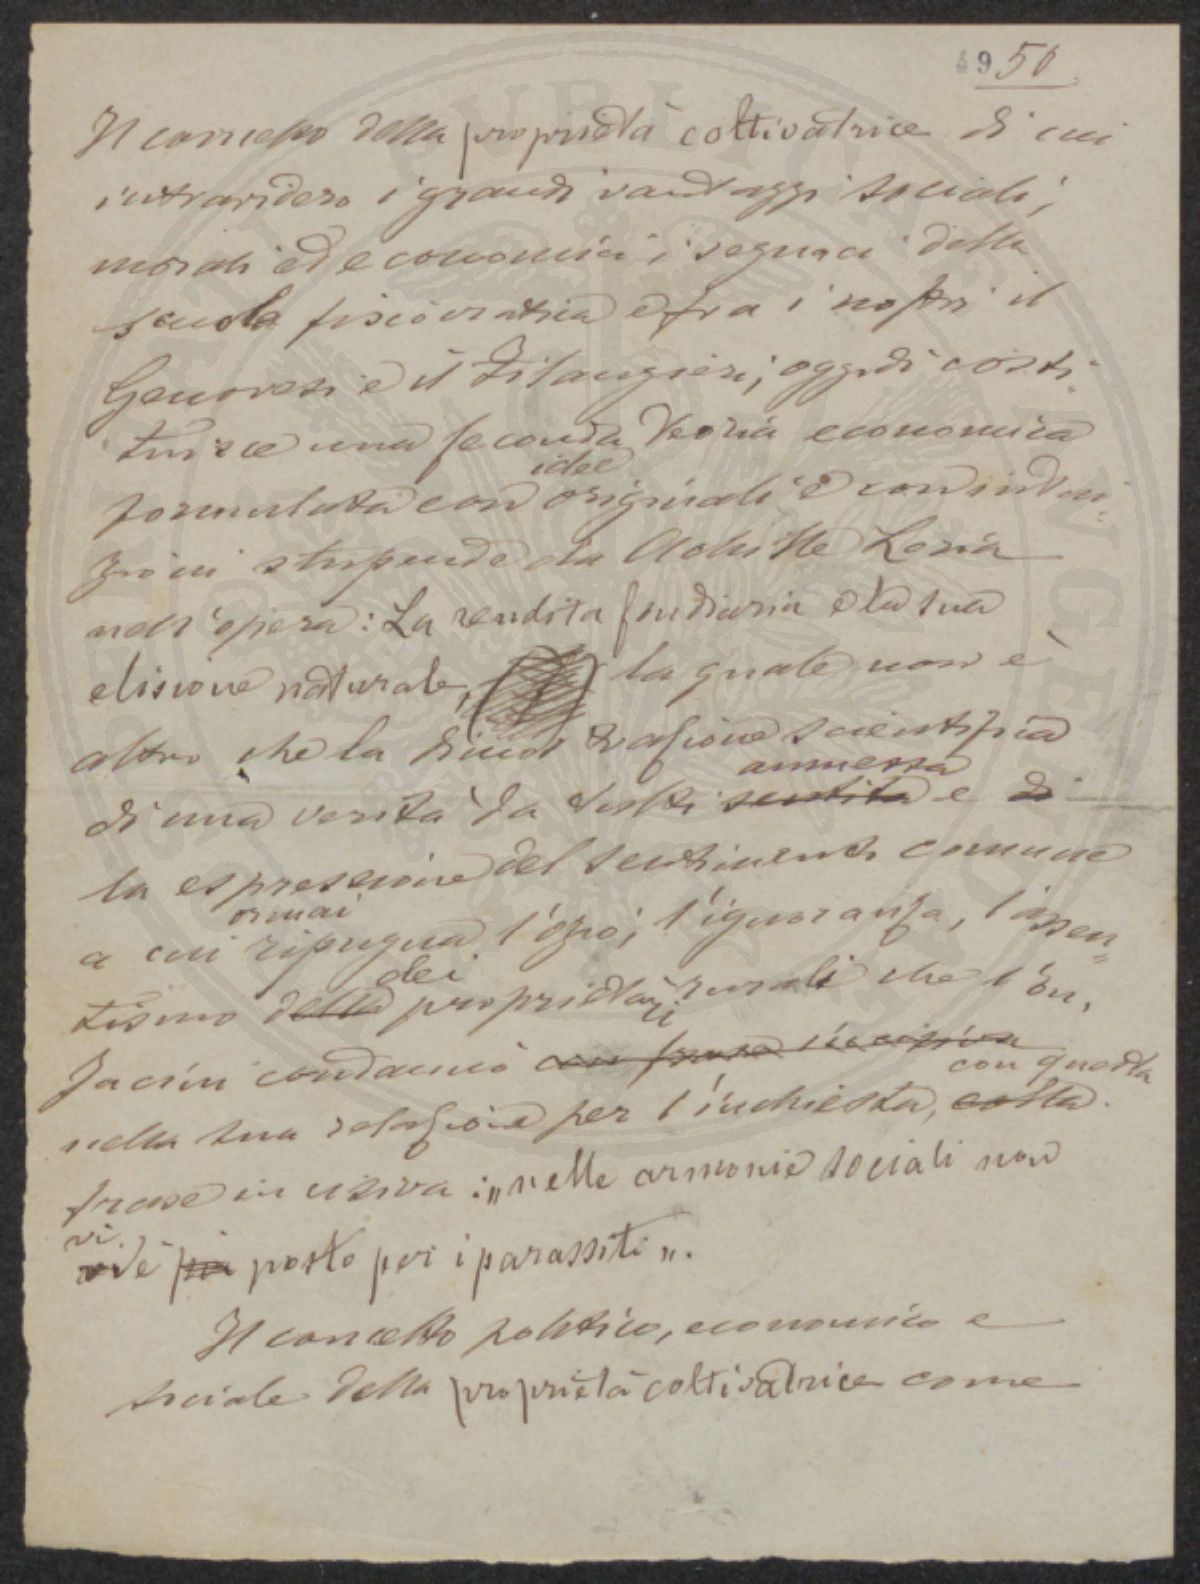 49 50
Il concetto della proprietà coltivatrice di cui
intravidero i grandi vantaggi sociali,
morali ed economici i seguaci della
scuola fisiocratica e fra i nostri il
Genovesi e il Filangieri, oggidì costi-
tuisce una seconda teoria economica
idee
formulata con originali e con intui-
zioni stupende da Achille Loria
nell'opera: La rendita fondiaria e la sua
elisione naturale, la quale non è
altro che la dimostrazione scientifica
ammessa
di una verità da tutti sentita e di
la espressione del sentimento comune
ormai
a cui ripugna l'ozio, l'ignoranza, l'assen-
dei
tismo della proprietari rurali che l'on.
Jacini condannò con frase incisiva
con questa
nella sua relazione per l'inchiesta, colla
frase incisiva: „nelle armonie sociali non
vi
è più posto per i parassiti„.
Il concetto politico, economico e
sociale della proprietà coltivatrice come